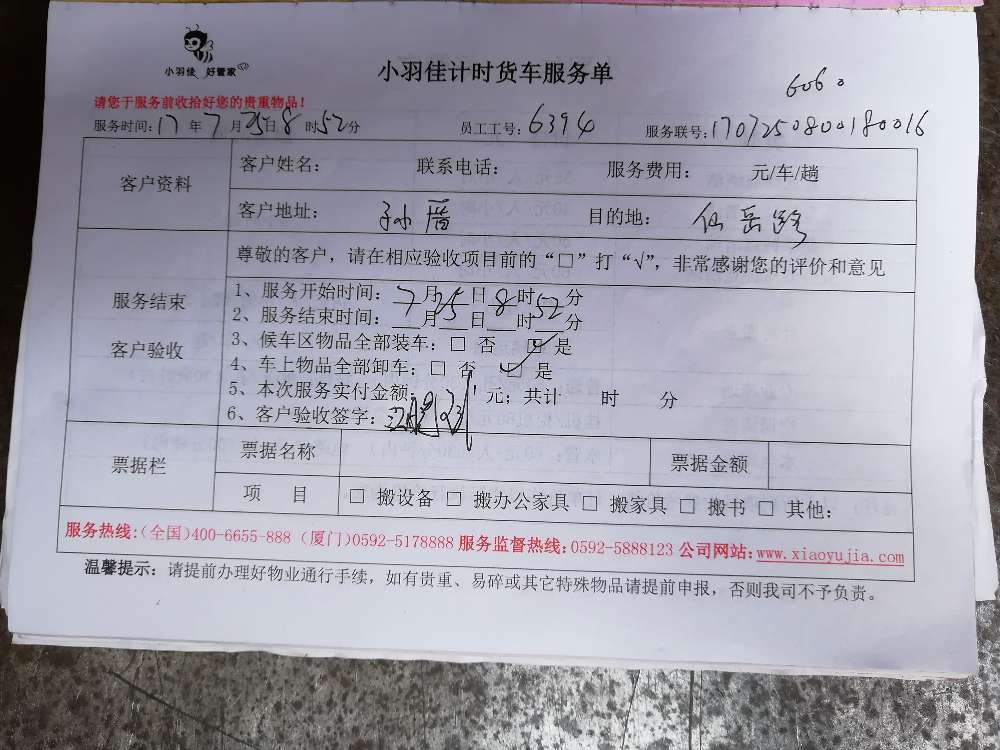 小羽佳 好管家
小羽佳计时货车服务单
6060
请您于服务前收拾好您的贵重物品！
服务时间：17年7月25日8时52分 员工工号：6394 服务联号：1707250800180016
客户资料 客户姓名： 联系电话： 服务费用： 元/车/趟
客户地址： 孙厝 目的地： 仙岳路
尊敬的客户，请在相应验收项目前的“□”打“√”，非常感谢您的评价和意见
服务结束
客户验收
1、服务开始时间：7月25日8时52分
2、服务结束时间：__月__日__时__分
3、候车区物品全部装车：□ 否 ☑ 是
4、车上物品全部卸车：□ 否 ☑ 是
5、本次服务实付金额： 元；共计 时 分
6、客户验收签字：
票据栏 票据名称 票据金额
项 目 □ 搬设备 □ 搬办公家具 □ 搬家具 □ 搬书 □ 其他：
服务热线:(全国)400-6655-888 (厦门)0592-5178888 服务监督热线:0592-5888123 公司网站:www.xiaoyujia.com
温馨提示：请提前办理好物业通行手续，如有贵重、易碎或其它特殊物品请提前申报，否则我司不予负责。